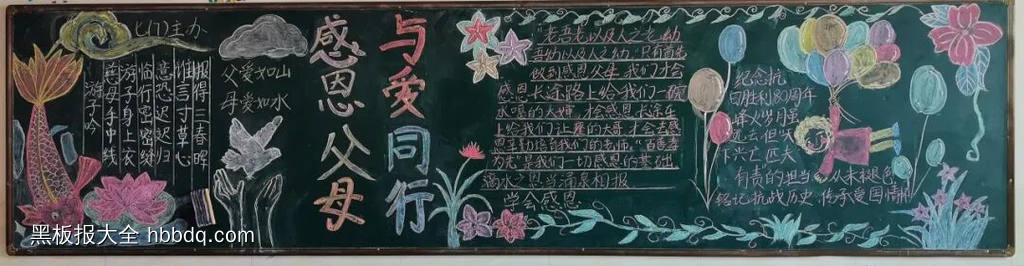 七(7)主办
游子吟
慈母手中线
游子身上衣
临行密密缝
意恐迟迟归
谁言寸草心
报得三春晖
父爱如山
母爱如水
感恩父母
与爱同行
"老吾老以及人之老,幼
吾幼以及人之幼。"只有首先
做到感恩父母,我们才会
感恩长途路上给我们一碗
水喝的大婶,才会感恩长途车
上给我们让座的大哥,才会去感
恩辛勤培育我们的老师。"百善孝
为先"是我们一切感恩的基础
滴水之恩当涌泉相报
学会感恩
纪念抗
日胜利80周年
烽火岁月虽
已远去但"天
下兴亡,匹夫
有责"的担当 从未褪色
铭记抗战历史,传承爱国情怀
黑板报大全 hbbdq.com